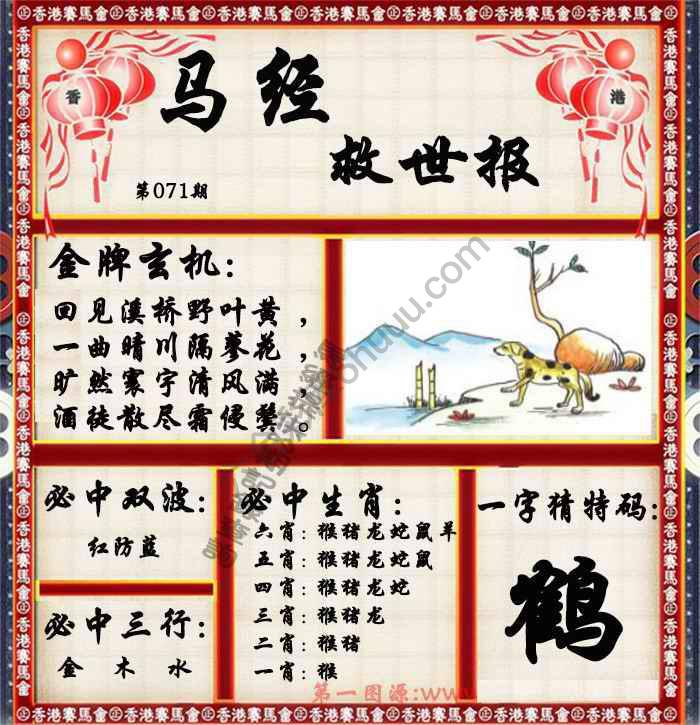 香 港
马经
救世报
第071期
金牌玄机:
回见溪桥野叶黄,
一曲晴川隔蓼花,
旷然寰宇清风满,
酒徒散尽霜侵鬓。
必中双波:
红防蓝
必中三行:
金 木 水
必中生肖:
六肖:猴猪龙蛇鼠羊
五肖:猴猪龙蛇鼠
四肖:猴猪龙蛇
三肖:猴猪龙
二肖:猴猪
一肖:猴
一字猜特码:
鹤
第一图源:www
香港赛馬會